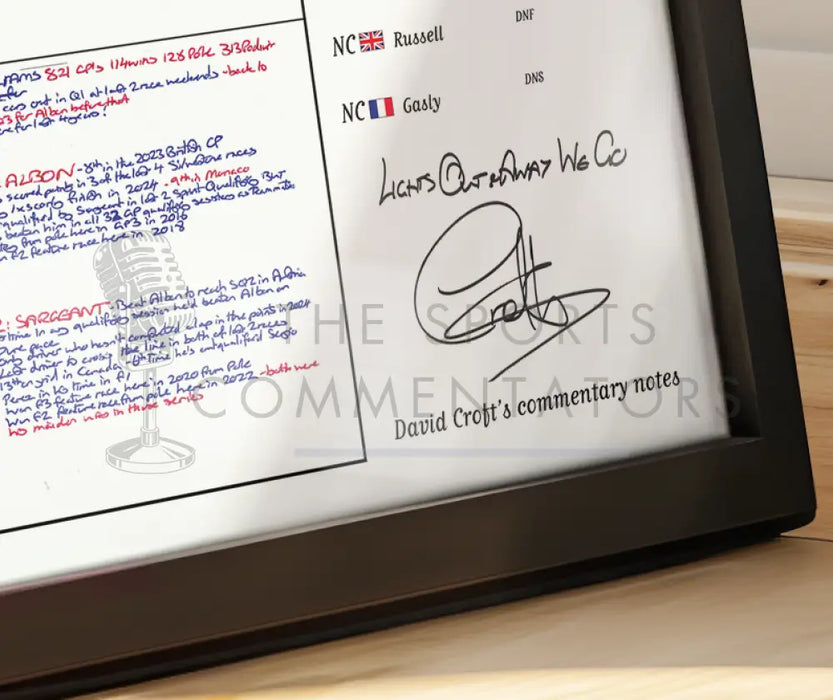 821 GPs 114 wins 128 Pole 313 Podiums
cars out in Q1 at last 2 race weekends - back to
23 for Albon before that
ALBON - 8th in the 2023 British GP
scored points in 3 of the last 4 Silverstone races
in 2024 - 9th in Monaco
qualified by Sargeant in last 2 Sprint Qualifyings But
beaten him in all 32 GP qualifying sessions as teammate
from pole here in GP3 in 2016
F2 feature race here in 2018
SARGEANT - Beat Albon to reach SQ2 in Austria
time in any qualifying session he'd beaten Albon on
pure pace
only driver who hasn't completed a lap in the points in 2024
Last driver to cross the line in both of last 2 races
13th on grid in Canada - 8th time he's outqualified Sergio
Perez in his time in F1
Won F3 feature race here in 2020 from Pole
Won F2 feature race from pole here in 2022 - both were
his maiden wins in those series
DNF
NC Russell
DNS
NC Gasly
LIGHTS OUT & AWAY WE GO
Croft
THE SPORTS
COMMENTATORS
David Croft's commentary notes